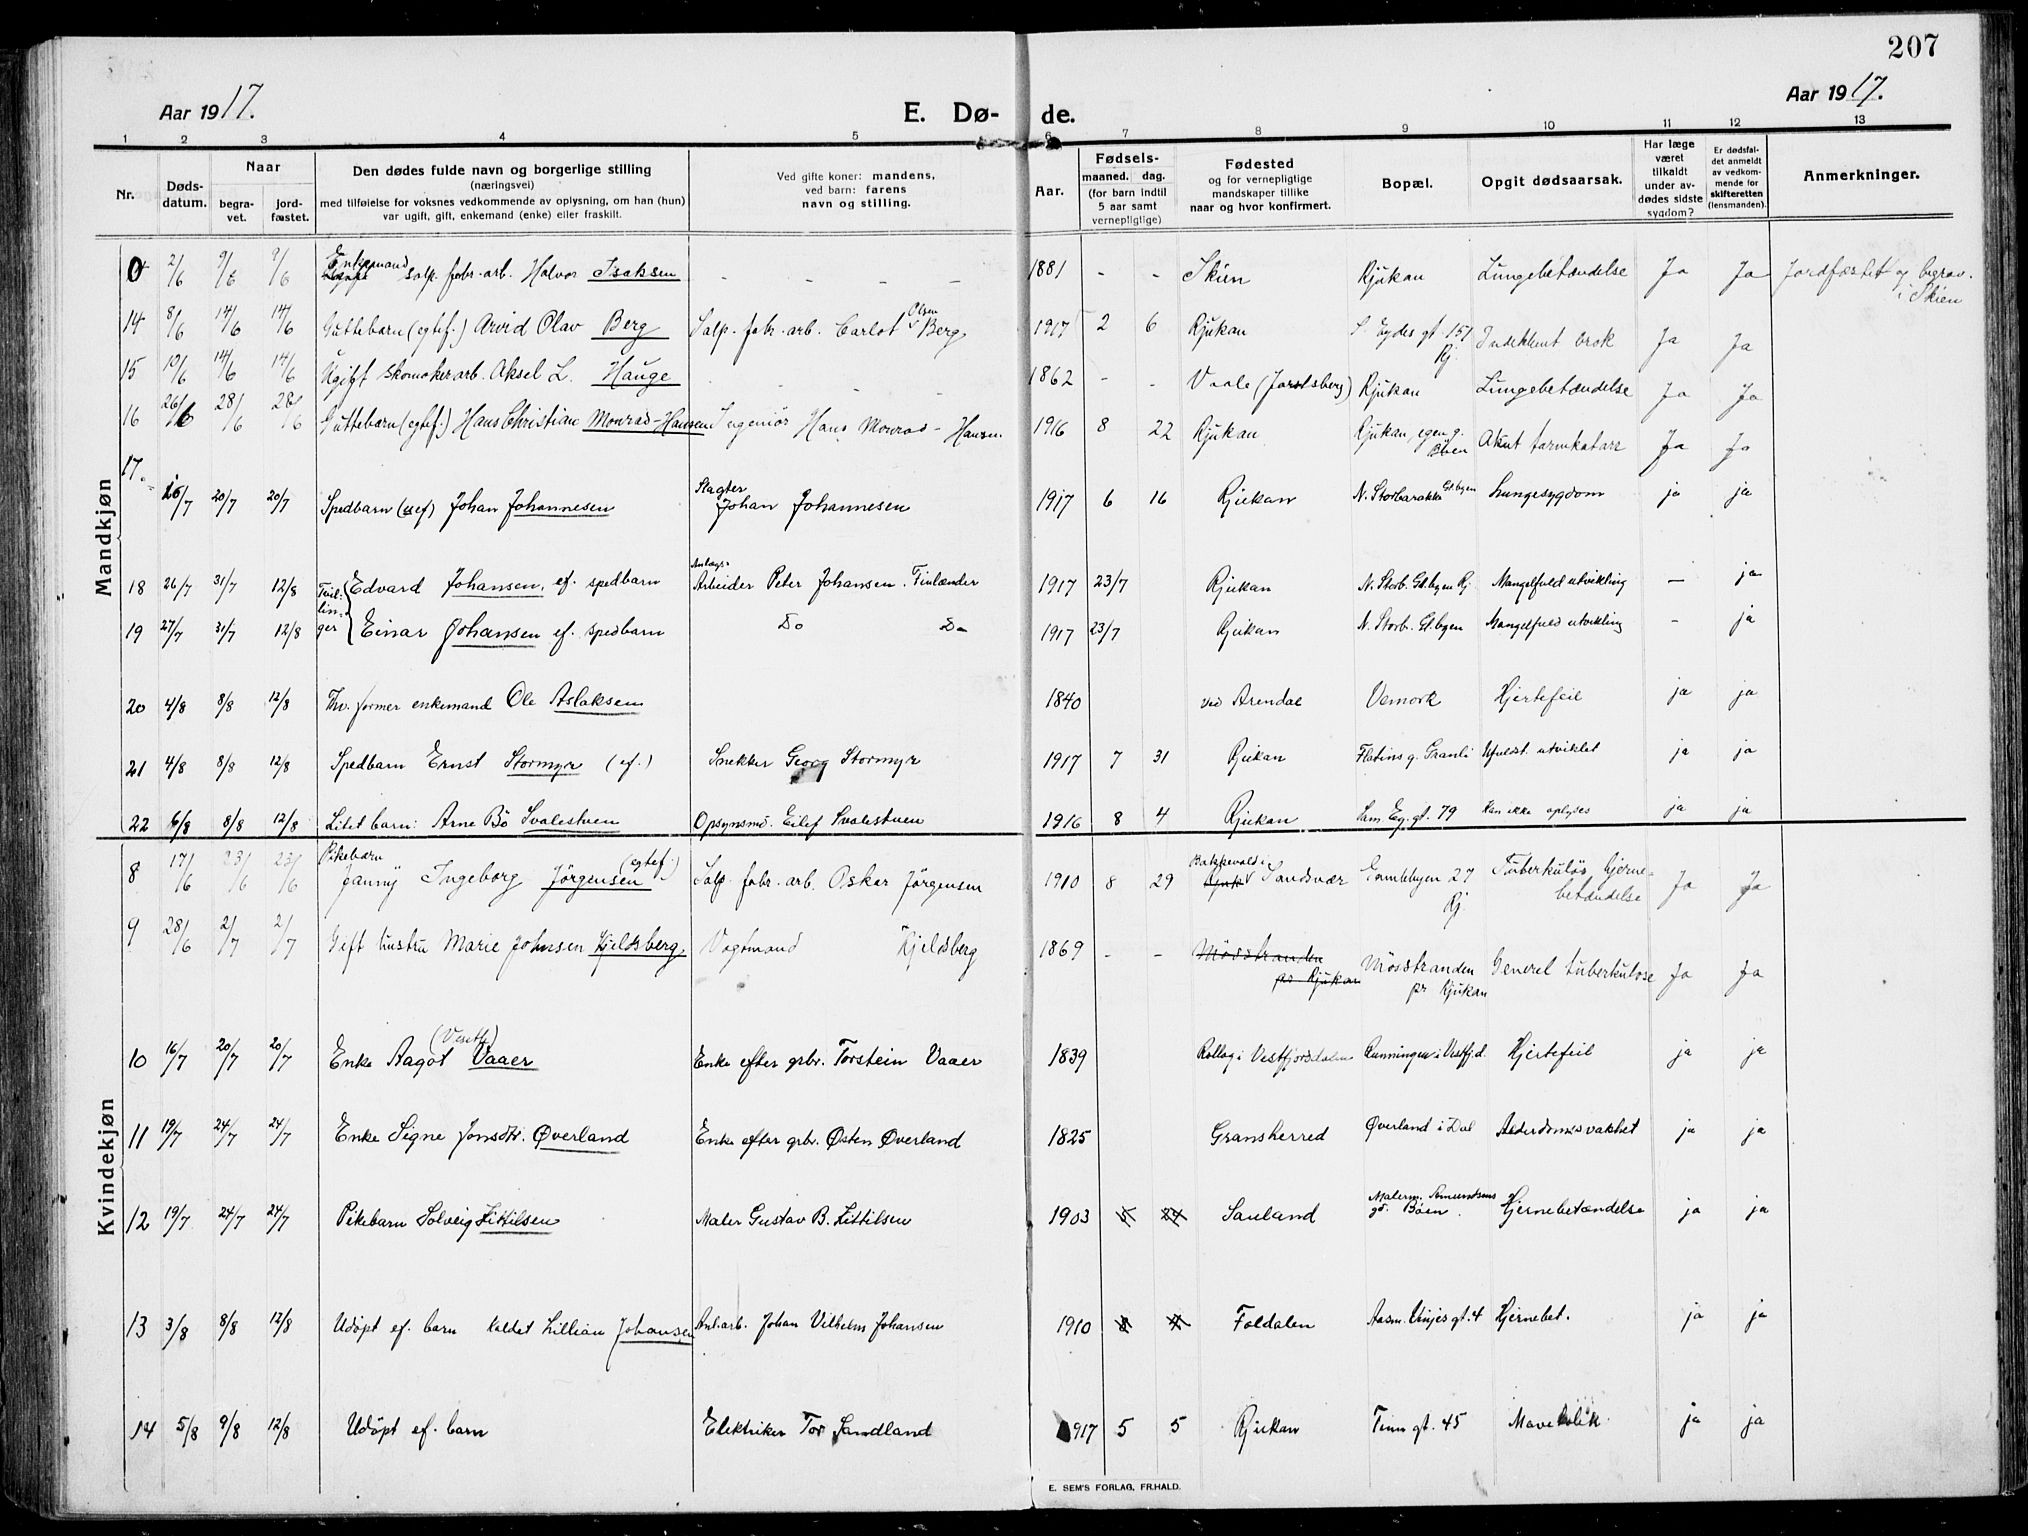 207
Aar 1917. E. Dø- de. Aar 1917.
1 2 3 4 5 6 7 8 9 10 11 12 13
Nr.
Døds-datum.
Naar
begra-vet.
jord-fæstet.
Den dødes fulde navn og borgerlige stilling
(næringsvei)
med tilføielse for voksnes vedkommende av oplysning, om han (hun)
var ugift, gift, enkemand (enke) eller fraskilt.
Ved gifte koner: mandens,
ved barn: farens
navn og stilling.
Aar.
Fødsels-
maaned. dag.
(for barn indtil
5 aar samt
vernepligtige)
Fødested
og for vernepligtige
mandskaper tillike
naar og hvor konfirmert.
Bopæl.
Opgit dødsaarsak.
Har læge
været
tilkaldt
under av-
dødes sidste
sygdom?
Er dødsfal-
det anmeldt
av vedkom-
mende for
skifteretten
(lensmanden).
Anmerkninger.
Mandkjøn
0 2/6 9/6 9/6 Enkemand Salp. fabr. arb. Halvor Isaksen - - - - 1881 - - Skien Rjukan Lungebetændelse Ja Ja Jordfæstet og begrav. i Skien
14 8/6 14/6 14/6 Guttebarn (egtef.) Arvid Olav Berg Salp. fabr. arb. Carlot Olsen Berg 1917 2 6 Rjukan S. Eydes gt. 157 Rj. Indeklemt brok Ja Ja
15 10/6 14/6 14/6 Ugift Skomakerarb. Aksel L. Hauge - - - - 1862 - - Vaale (Jarlsberg) Rjukan Lungebetændelse Ja Ja
16 26/6 28/6 28/6 Guttebarn (egtef.) Hans Christian Monrad-Hansen Ingeniör Hans Monrad-Hansen. 1916 8 22 Rjukan Rjukan, egen g. Bøen Akut tarmkatarr Ja Ja
17. 16/7 20/7 20/7 Spedbarn (ef) Johan Johannesen Slagter Johan Johannesen 1917 6 16 Rjukan N. Storbarakke Gl.byen Lungesygdom ja ja
18 26/7 31/7 12/8 Tvil-lin-ger Edvard Johansen, ef. spedbarn Anlægs-Arbeider Peter Johansen. Finlænder 1917 23/7 Rjukan N. Storb. Gl.byen Rj. Mangelfuld utvikling - ja
19 27/7 31/7 12/8 Einar Johansen ef. spedbarn Do Do 1917 23/7 Rjukan N. Storb. Gl.byen Mangelfuld utvikling - ja
20 4/8 8/8 12/8 Fhv. former enkemand Ole Aslaksen 1840 ved Arendal Vemork Hjertefeil ja ja
21 4/8 8/8 12/8 Spedbarn Ernst Stormyr (ef.) Snekker Georg Stormyr 1917 7 31 Rjukan Flatins g. Granli Ufuldst. utviklet ja ja
22 6/8 8/8 12/8 Litet barn: Arne Bö Svalestuen Opsynsmd. Eilef Svalestuen 1916 8 4 Rjukan Sam. Ey. gt. 79 Kan ikke oplyses ja ja
Kvindekjøn
8 17/6 23/6 23/6 Pikebarn Janny Ingeborg Jörgensen (egtef.) Salp. fabr. arb. Oskar Jörgensen 1910 8 29 Bakkevold i Sandsvær Gamlebyen 27 Rj. Tuberkuløs hjerne-betændelse Ja Ja
9 28/6 2/7 2/7 Gift hustru Marie Johnsen Kjeldsberg. Vogtmand Kjeldsberg 1869 - - Mösstranden pr. Rjukan Mösstranden pr Rjukan Generel tuberkulose Ja Ja
10 16/7 20/7 20/7 Enke Aagot (Vesetl) Vaaer Enke efter grbr. Torstein Vaaer 1839 Rollag i Vestfjorddalen Runningen i Vestfjd. Hjertefeil ja ja
11 19/7 24/7 24/7 Enke Signe Jonsdtr. Øverland Enke efter grbr. Østen Øverland 1825 Gransherred Øverland i Dal Alderdomssvakhet ja ja
12 19/7 24/7 24/7 Pikebarn Solveig Kittilsen Maler Gustav B. Kittilsen 1903 5 24 Sauland Malerm. Amundsens gd. Bøen. Hjernebetændelse ja ja
13 3/8 8/8 12/8 Udöpt ef. barn kaldet Lillian Johansen Anl.arb. Johan Vilhelm Johansen 1910 Foldalen Aasm. Vinjes gt. 4 Hjernebet. ja ja
14 5/8 9/8 12/8 Udöpt ef. barn Elektriker Tor Sandland 1917 5 5 Rjukan Tinn gt. 45 Mavekolik ja ja
E. SEM'S FORLAG, FR.HALD.